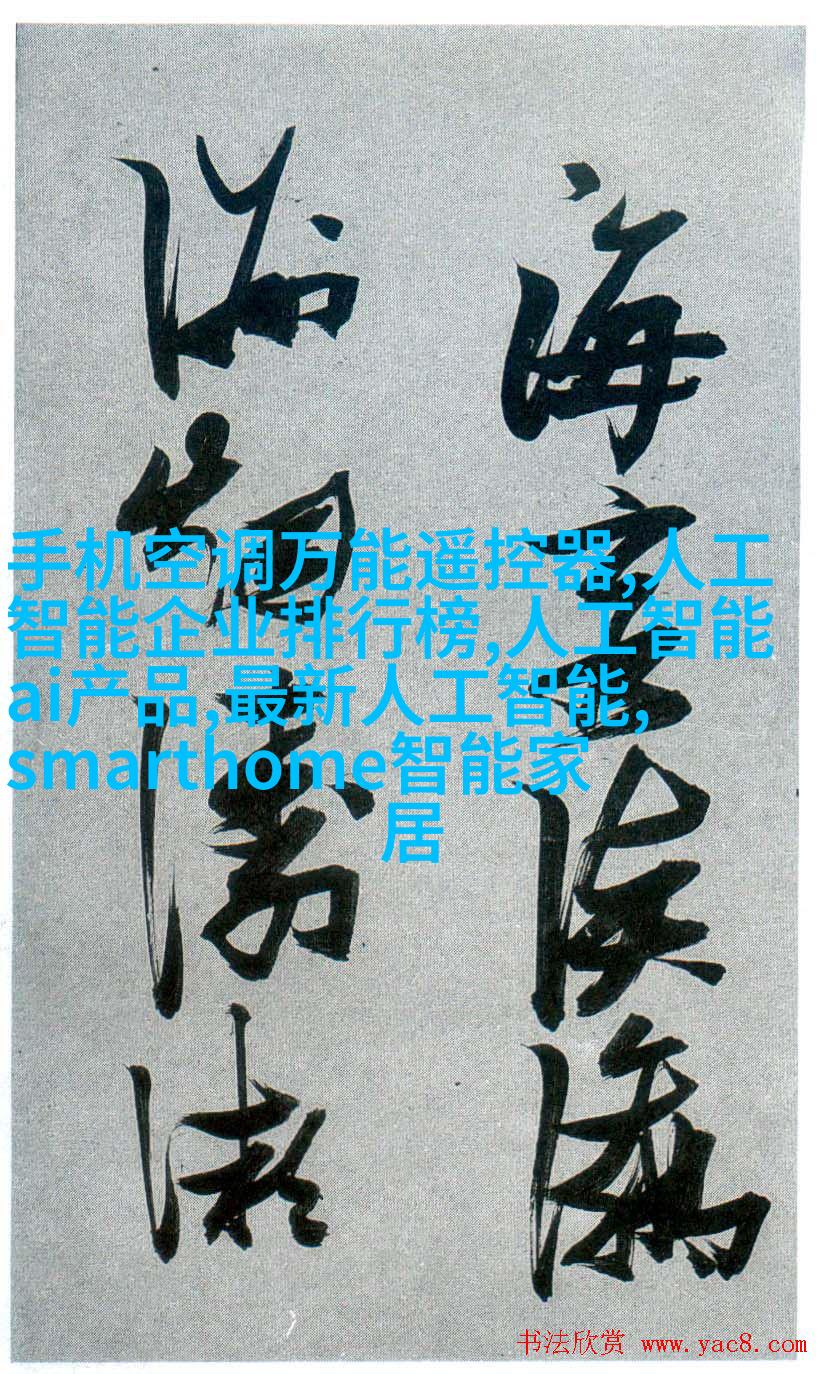 海
手机空调万能遥控器,人工
智能企业排行榜,人工智能
ai产品,最新人工智能,
smarthome智能家
居
书法欣赏 www.yac8.com